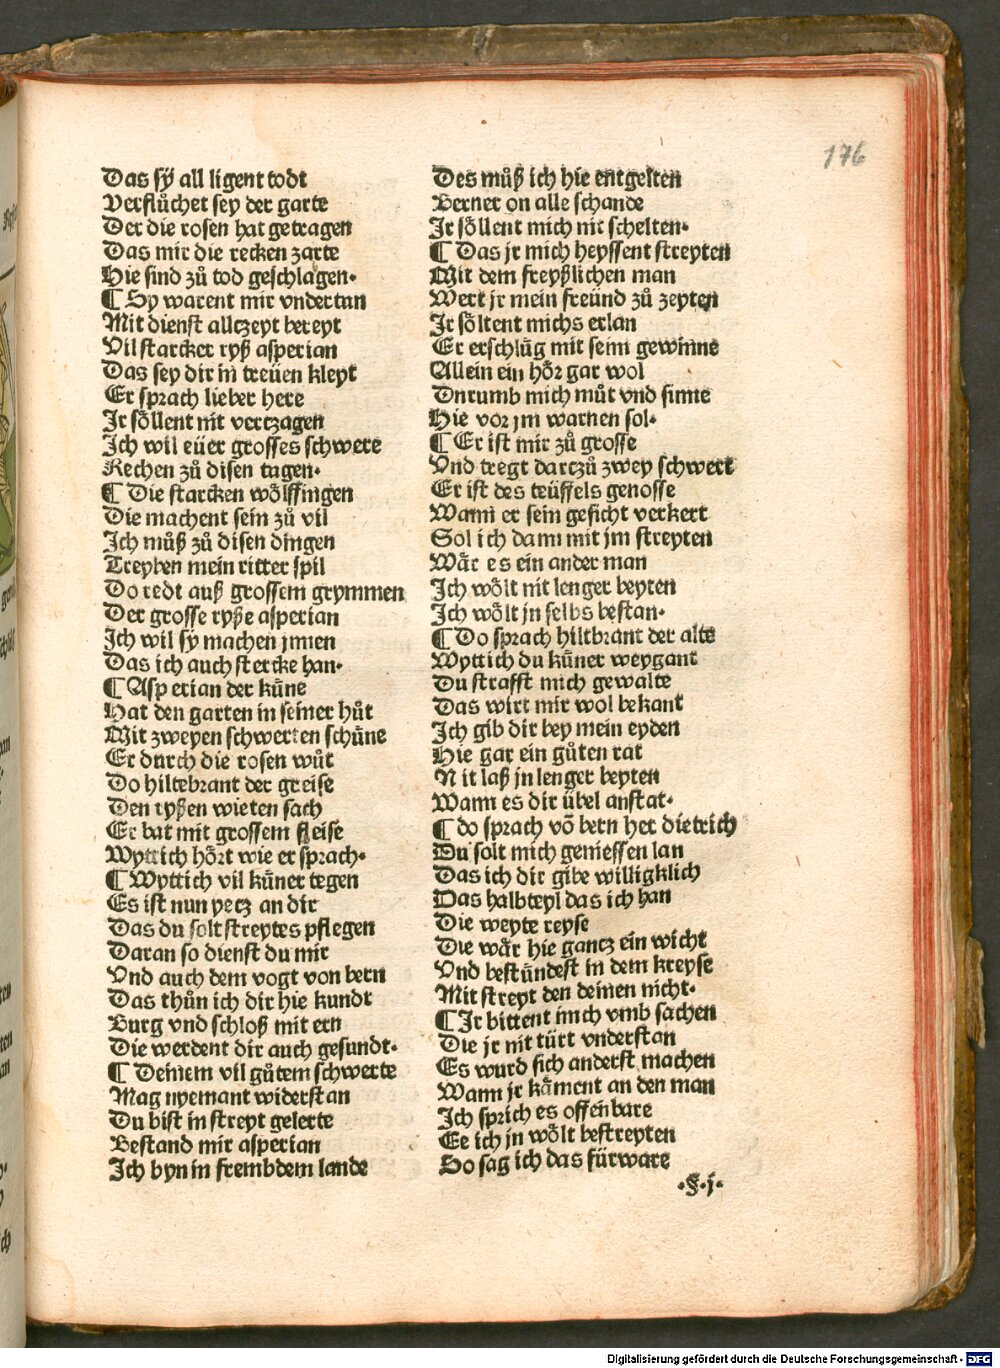 176
Das sÿ all ligent todt
Verflůchet sey der garte
Der die rosen hat getragen
Das mir die recken zarte
Hie sind zů tod geschlagen.
¶ Sy warent mir vndertan
Mit dienst allczeyt bereyt
Vil starcker ryß asperian
Das sey dir in treüen kleyt
Er sprach lieber here
Ir söllent nit verczagen
Ich wil eüer grosses schwere
Rechen zů disen tagen.
¶ Die starcken wölffingen
Die machent sein zů vil
Ich můß zů disen dingen
Treyben mein ritter spil
Do redt auß grossem grymmen
Der grosse ryße asperian
Ich wil sy machen jnnen
Das ich auch stercke han.
¶ Asperian der küne
Hat den garten in seiner hůt
Mit zweyen schwerten schüne
Er durch die rosen wůt
Do hiltebrant der greise
Den ryßen wieten sach
Er bat mit grossem fleise
Wyttich hört wie er sprach.
¶ Wyttich vil küner tegen
Es ist nun yecz an dir
Das du solt streytes pflegen
Daran so dienst du mir
Vnd auch dem vogt von bern
Das thůn ich dir hie kundt
Burg vnd schloß mit ern
Die werdent dir auch gesundt.
¶ Deinem vil gůtem schwerte
Mag nyemant widerstan
Du bist in streyt gelerte
Bestand mir asperian
Ich byn in frembdem lande
Des můß ich hie entgelten
Berner on alle schande
Ir söllent mich nit schelten.
¶ Das jr mich heyssent streyten
Mit dem freyßlichen man
Wert jr mein freünd zů zeyten
Ir söltent michs erlan
Er erschlůg mit seim gewinne
Allein ein hör gar wol
Dnrumb mich můt vnd sinne
Hie vor jm warnen sol.
¶ Er ist mir zů grosse
Vnd tregt darczů zwey schwert
Er ist des teüffels genosse
Wann er sein gesicht verkert
Sol ich dann mit jm streyten
Wär es ein ander man
Ich wölt nit lenger beyten
Ich wölt jn selbs bestan.
¶ Do sprach hiltbrant der alte
Wyttich du küner weygant
Du straffst mich gewalte
Das wirt mir wol bekant
Ich gib dir bey mein eyden
Hie gar ein gůten rat
Nit laß jn lenger beyten
Wann es dir übel anstat.
¶ do sprach võ bern her dietrich
Du solt mich geniessen lan
Das ich dir gibe willigklich
Das halbteyl das ich han
Die weyte reyse
Die wär hie gancz ein wicht
Vnd bestündest in dem kreyse
Mit streyt den deinen nicht.
¶ Ir bittent mich vmb sachen
Die jr nit türt vnderstan
Es wurd sich anderst machen
Wann jr käment an den man
Ich sprich es offenbare
Ee ich jn wölt bestreyten
So sag ich das fürware
.§.j.
Digitalisierung gefördert durch die Deutsche Forschungsgemeinschaft - DFG